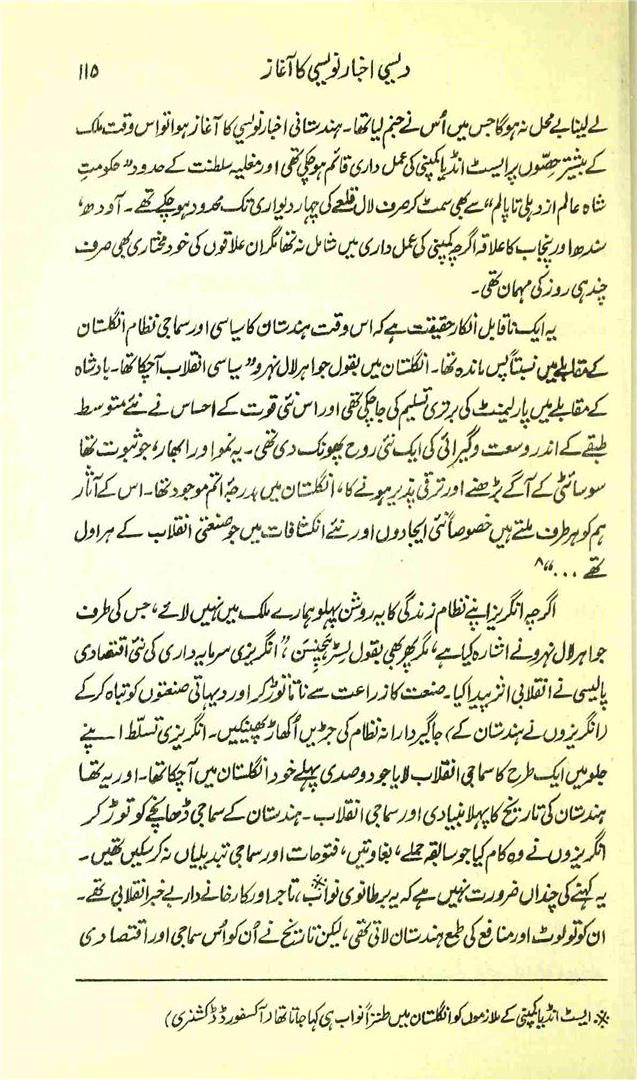 دیسی اخبار نویسی کا آغاز ۱۱۵
لے لینا بے محل نہ ہوگا جس میں اُس نے جنم لیا تھا۔ ہندستانی اخبار نویسی کا آغاز ہوا تو اس وقت ملک
کے بیشتر حصّوں پر ایسٹ انڈیا کمپنی کی عمل داری قائم ہو چکی تھی اور مغلیہ سلطنت کے حدود ”حکومتِ
شاہ عالم از دہلی تا پالم“ سے بھی سمٹ کر صرف لال قلعے کی چہار دیواری تک محدود ہو چکے تھے۔ آودھ،
سندھ اور پنجاب کا علاقہ اگرچہ کمپنی کی عمل داری میں شامل نہ تھا مگر ان علاقوں کی خود مختاری بھی صرف
چند ہی روز کی مہمان تھی۔
یہ ایک ناقابل انکار حقیقت ہے کہ اس وقت ہندستان کا سیاسی اور سماجی نظام انگلستان
کے مقابلے میں نسبتاً پس ماندہ تھا۔ انگلستان میں بقول جواہر لال نہرو ”سیاسی انقلاب آچکا تھا۔ بادشاہ
کے مقابلے میں پارلیمنٹ کی برتری تسلیم کی جا چکی تھی اور اس نئی قوت کے احساس نے نئے متوسط
طبقے کے اندر وسعت و گیرائی کی ایک نئی روح پھونک دی تھی۔ یہ نمو اور ابھار، جو ثبوت تھا
سوسائٹی کے آگے بڑھنے اور ترقی پذیر ہونے کا، انگلستان میں بدرجۂ اتم موجود تھا۔ اس کے آثار
ہم کو ہر طرف ملتے ہیں خصوصاً نئی ایجادوں اور نئے انکشافات میں جو صنعتی انقلاب کے ہراول
تھے ...“۸
اگرچہ انگریز اپنے نظام زندگی کا یہ روشن پہلو ہمارے ملک میں نہیں لائے، جس کی طرف
جواہر لال نہرو نے اشارہ کیا ہے، مگر پھر بھی بقول لسٹر ہچینسن، ”انگریزی سرمایہ داری کی نئی اقتصادی
پالیسی نے انقلابی اثر پیدا کیا۔ صنعت کا زراعت سے ناتا توڑ کر اور دیہاتی صنعتوں کو تباہ کر کے
(انگریزوں نے ہندستان کے) جاگیردارانہ نظام کی جڑیں اُکھاڑ پھینکیں۔ انگریزی تسلّط اپنے
جلو میں ایک طرح کا سماجی انقلاب لایا جو دو صدی پہلے خود انگلستان میں آچکا تھا۔ اور یہ تھا
ہندستان کی تاریخ کا پہلا بنیادی اور سماجی انقلاب۔ ہندستان کے سماجی ڈھانچے کو توڑ کر
انگریزوں نے وہ کام کیا جو سابقہ حملے، بغاوتیں، فتوحات اور سماجی تبدیلیاں نہ کر سکیں تھیں۔
یہ کہنے کی چنداں ضرورت نہیں ہے کہ یہ برطانوی نواب※، تاجر اور کارخانے دار بے خبر انقلابی تھے۔
ان کو تو لوٹ اور منافع کی طمع ہندستان لائی تھی، لیکن تاریخ نے اُن کو اُس سماجی اور اقتصادی
※۔ ایسٹ انڈیا کمپنی کے ملازموں کو انگلستان میں طنزاً نواب ہی کہا جاتا تھا (آکسفورڈ ڈکشنری)